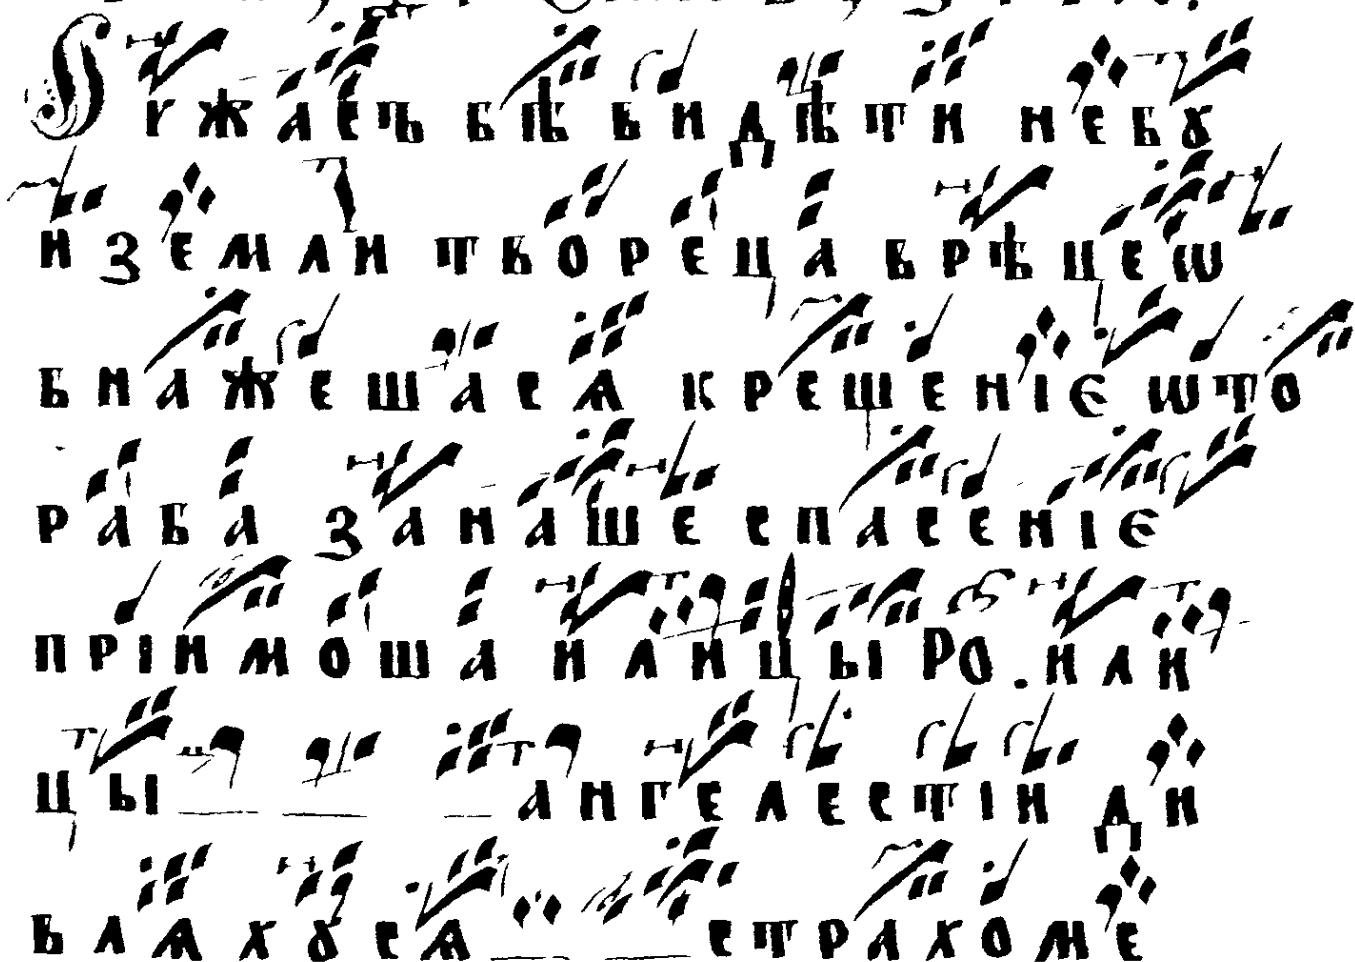 Ѹжасъ бѣ видѣти небꙋ
и земли твореца врѣцеѡ
бнажешася крешеніе ѡто
раба за наше спасеніе
пріимоша и лицы ро. и ли
цы ангелестіи ди
вляхꙋся страхоме